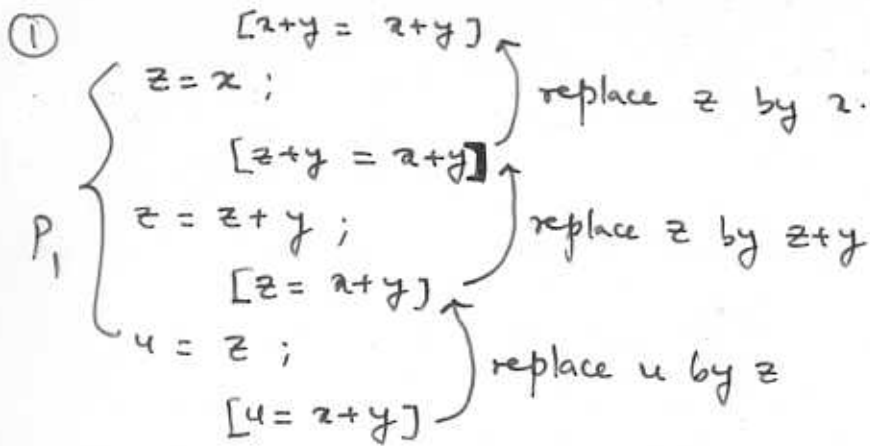 ① [x+y = x+y]
z = x ;
replace z by x.
[z+y = x+y]
P₁ z = z + y ;
replace z by z+y
[z = x+y]
u = z ;
replace u by z
[u = x+y]